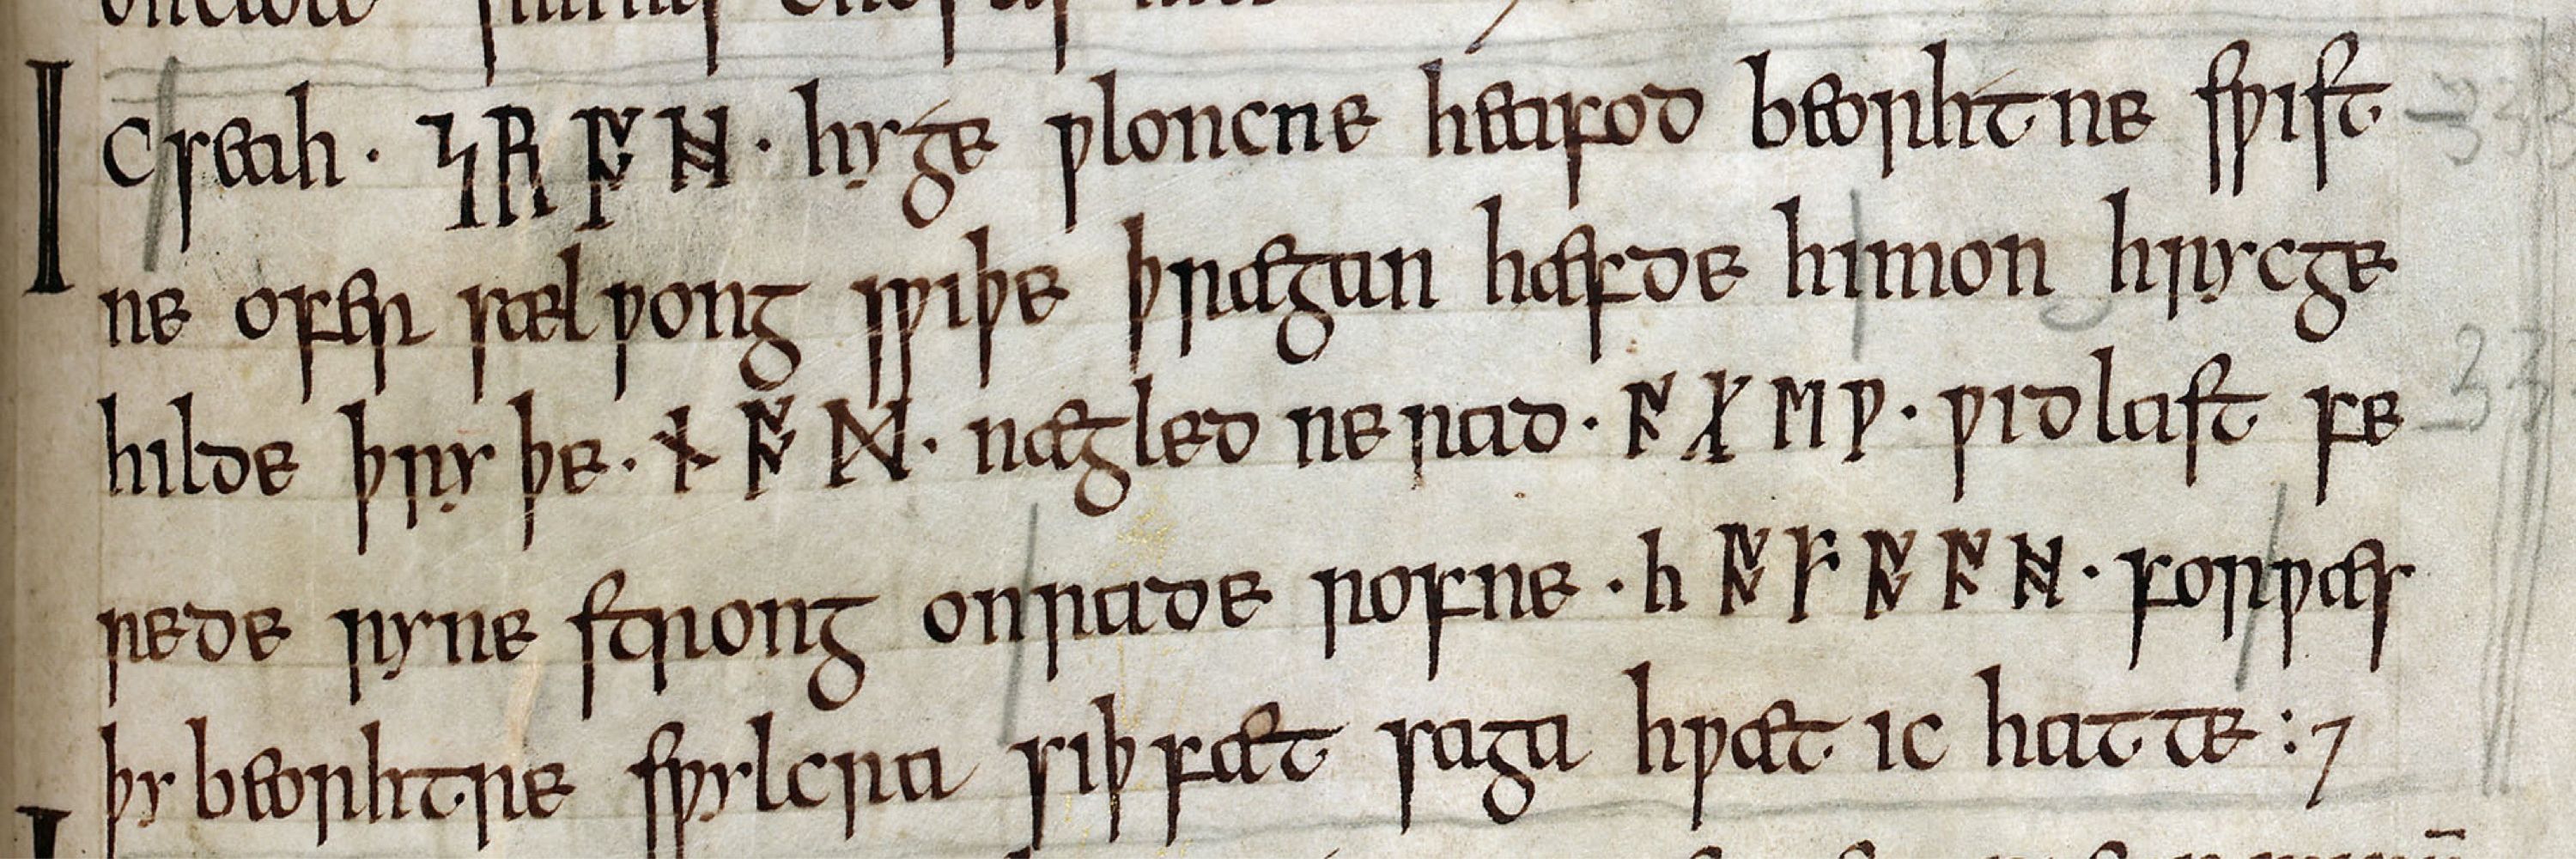 Ic seah · ᛋ ᚱ ᚩ ᚻ · hyge ƿloncne heafod beorhtne sƿift
ne ofer sæl ƿong sƿiþe þrægan hæfde himon hrycge
hilde þry þe · ᚾ ᚩ ᛗ · nægled ne rad · ᚪ ᚷ ᛖ ᚹ · ƿidlast fe
rede ryne strong onrade rofne · ᚳ ᚩ ᚠ ᚩ ᚪ ᚻ · forƿæs
þy beorhtre sƿylcra siþfæt saga hƿæt ic hatte :7